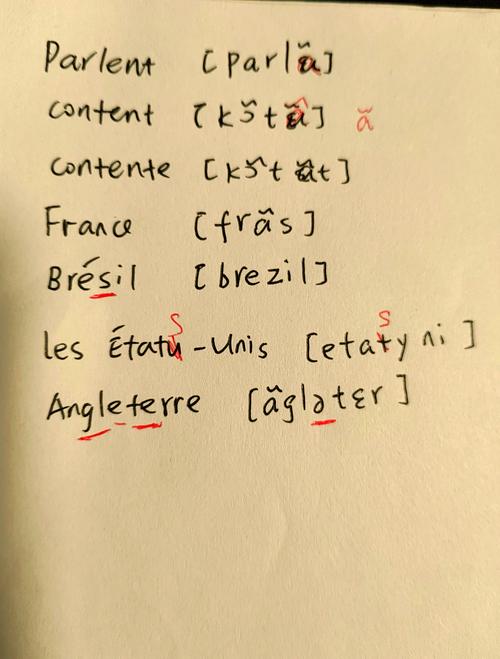 Parlent [parlã]
content [kɔ̃tã] ã
contente [kɔ̃tãt]
France [frãs]
Brésil [brezil]
les États-Unis [etasyni]
Angleterre [ãglətɛr]